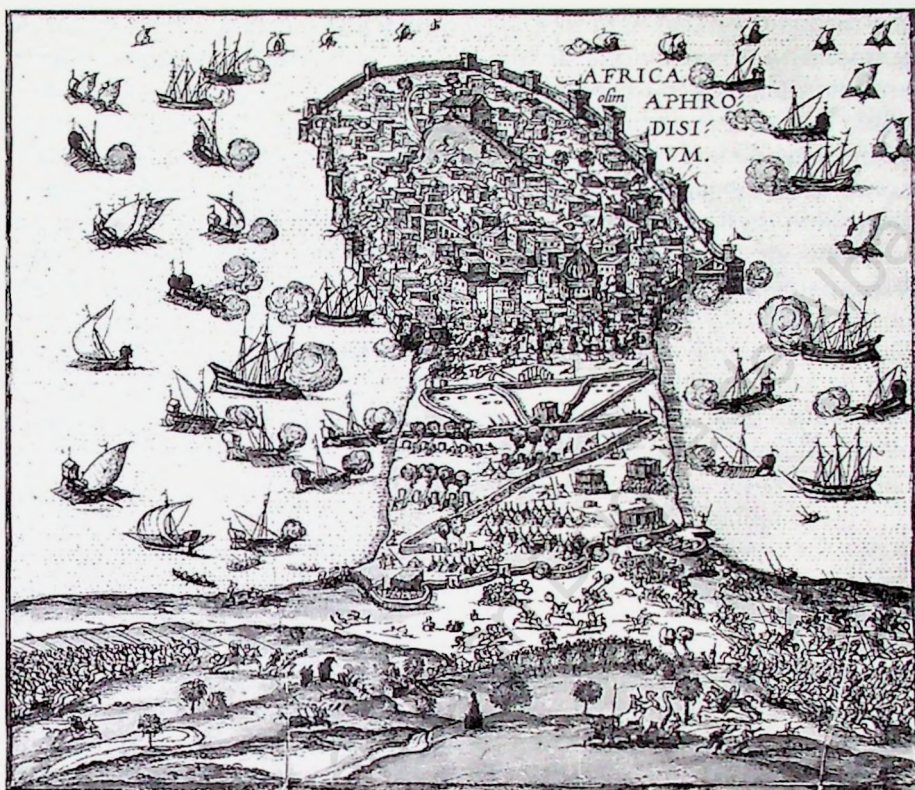 AFRICA.
olim APHRO-
DISI-
VM.